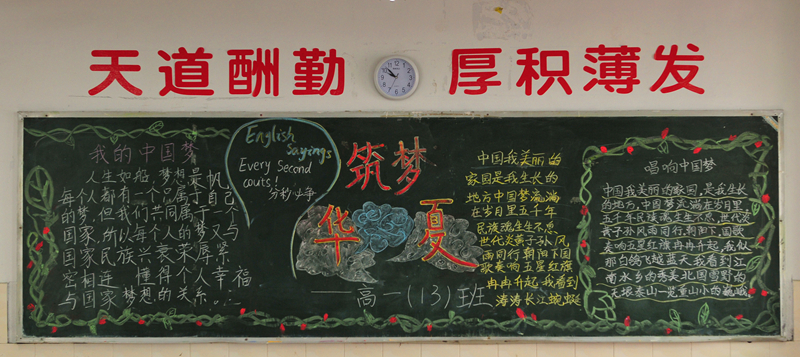 天道酬勤 厚积薄发
我的中国梦
人生如船,梦想是帆
每个人都有一个属于自己
的梦,但我们共同属于一个
国家,所以每个人的梦又与
国家民族兴衰荣辱紧
密相连 懂得个人幸福
与国家梦想的关系。
English
Sayings
Every Second
couts!
分秒必争
筑梦
华夏
——高一(13)班
中国我美丽的
家园是我生长的
地方中国梦流淌
在岁月里五千年
民族魂生生不忘
世代炎黄子孙风
雨同行朝阳下国
歌奏响五星红旗
冉冉升起我看到
涛涛长江蜿蜒
唱响中国梦
中国我美丽的家园,是我生长
的地方,中国梦流淌在岁月里
五千年民族魂生生不忘,世代炎
黄子孙风雨同行朝阳下,国歌
奏响五星红旗冉冉升起,我似
那白鸽飞越蓝天我看到江
南水乡的秀美北国雪野的
无垠泰山一览重山小的巍峨